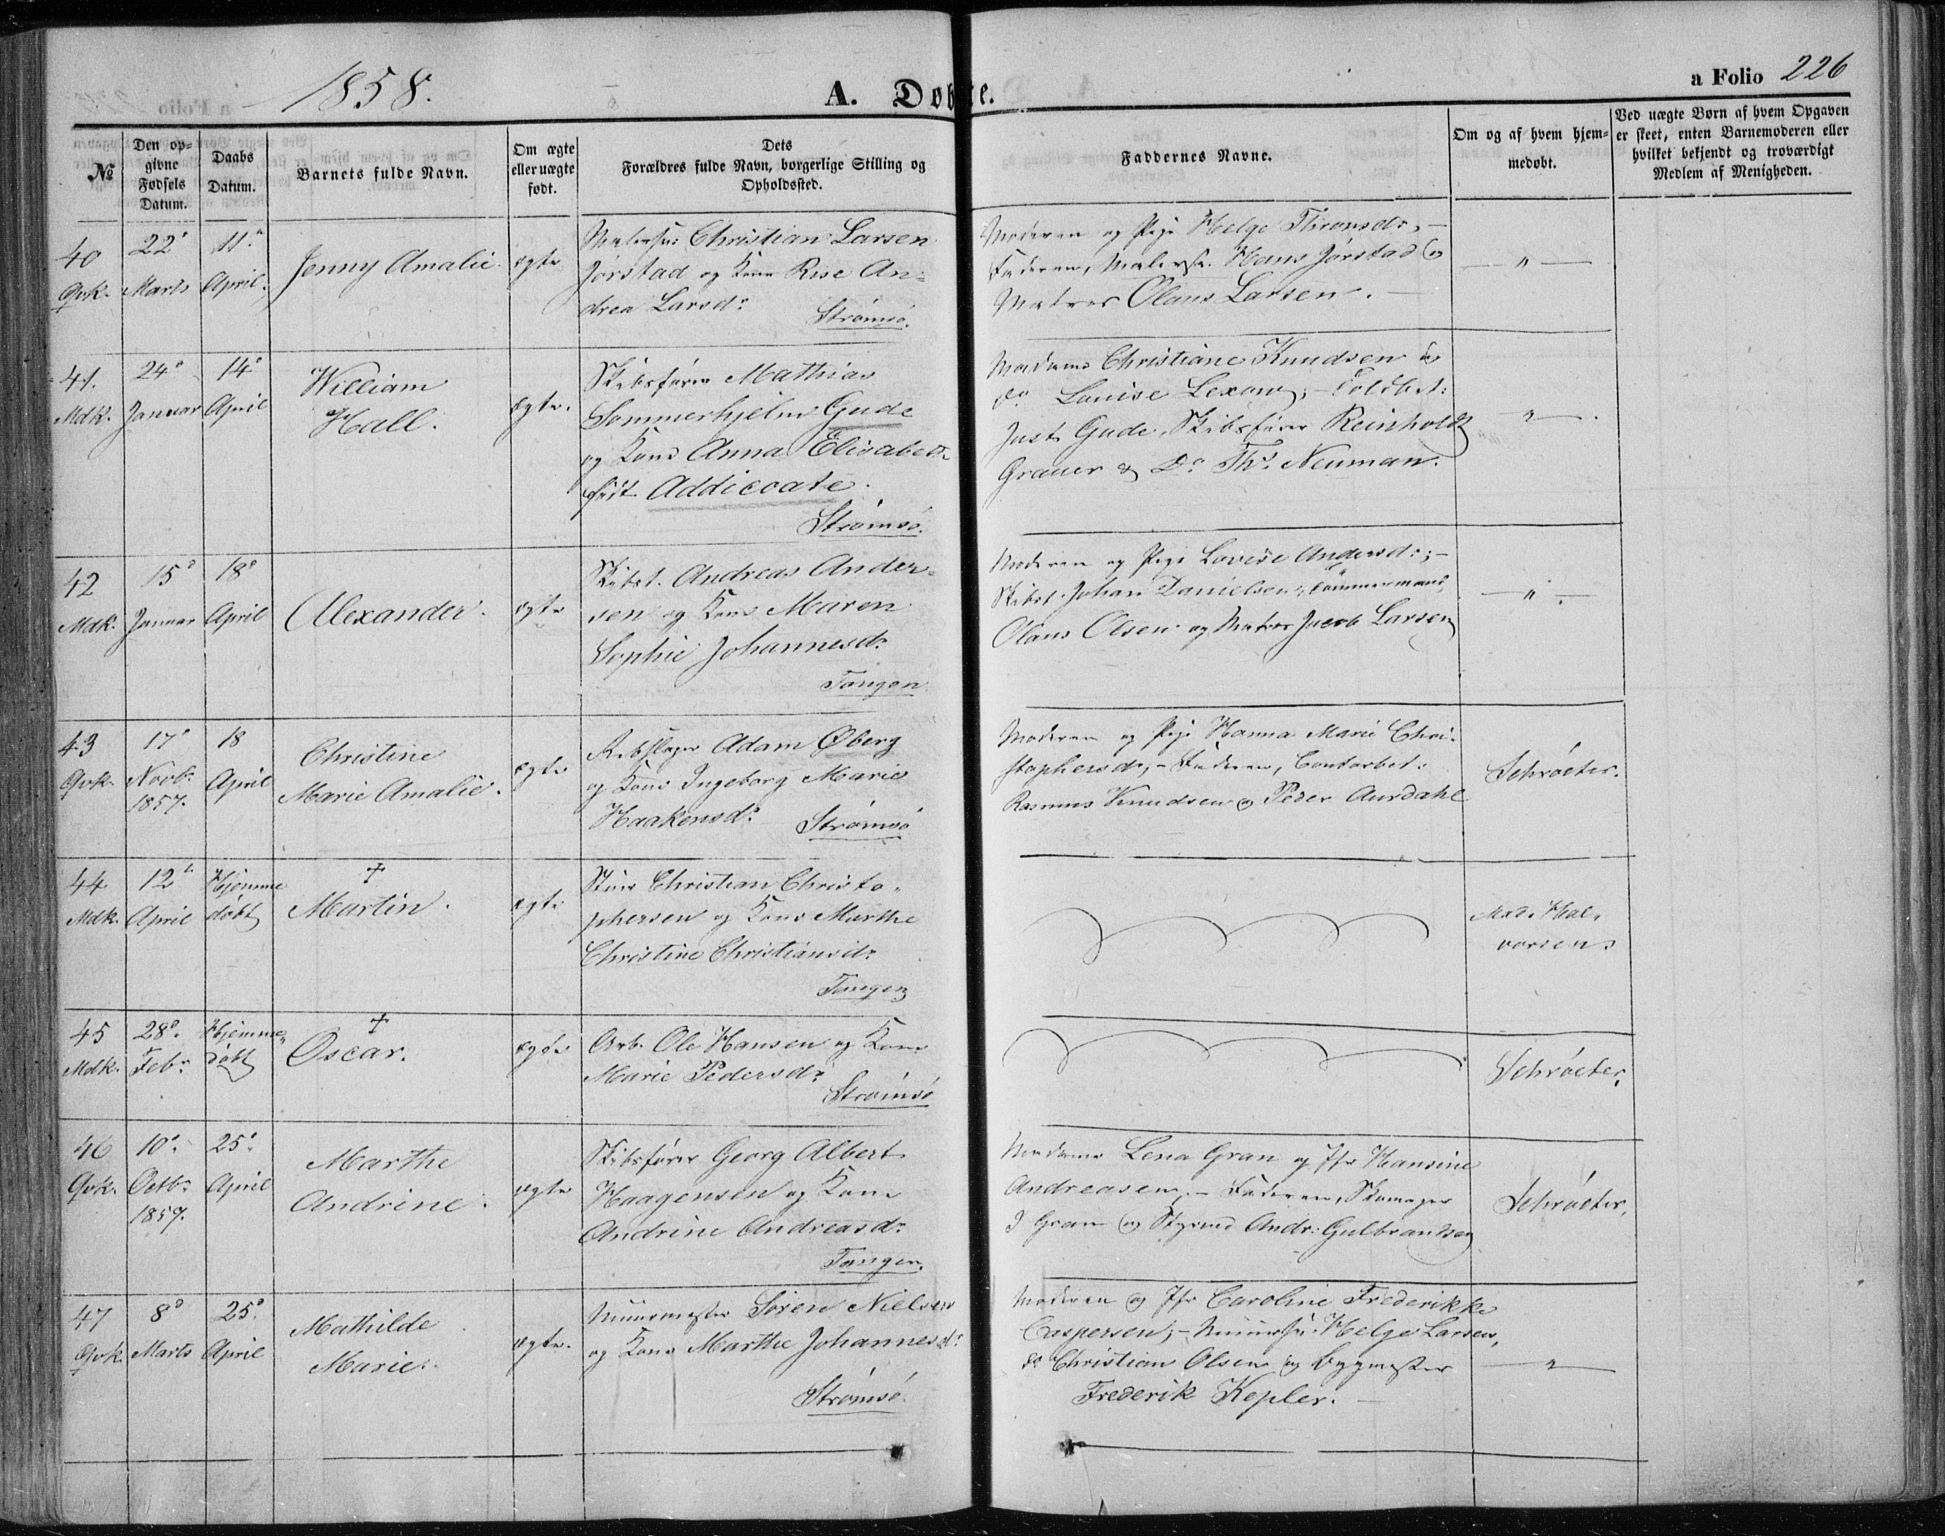 1858.
A. Döbte.
a Folio 226
№
Den op-
givne
Fødsels
Datum.
Daabs
Datum.
Barnets fulde Navn.
Om ægte
eller uægte
født.
Dets
Forældres fulde Navn, borgerlige Stilling og
Opholdssted.
Faddernes Navne.
Om og af hvem hjem-
medøbt.
Ved uægte Børn af hvem Opgaven
er skeet, enten Barnemoderen eller
hvilket bekjendt og troværdigt
Medlem af Menigheden.
40
Qvk.
22
Marts
11
April.
Jenny Amalie.
ægte
Malersv: Christian Larsen
Jørstad og Kone Rise An-
drea Larsd:
Strømsö.
Moderen og Pige Helge Thronsd:, –
Faderen, Malersv. Hans Jørstad og
Matros Olaus Larsen. –
— " —
41.
Mdk.
24
Januar
14
April
William
Hall.
ægte.
Skibsfører Mathias
Sommerhjelm Gude
og Kone Anna Elisabeth
født Addicoate.
Strømsö.
Madame Christiane Knudsen &
do Louise Lexow; – Toldbet:
Just Gude, Skibsfører Reinholdt
Grauer & Do Ths. Neuman.
— " —.
42
Mdk.
15
Januar
18
April
Alexander.
ægte
Skibst. Andreas Ander-
sen og Kone Maren
Sophie Johannesd:
Tangen
Moderen og Pige Lovise Andersd:; –
Skibst. Johan Danielsen, Tømmermand
Olaus Olsen og Matros Jacob Larsen
— " —
43
Qvk.
17
Novb:
1857.
18
April
Christine
Marie Amalie.
ægte
Rebslager Adam Øberg
og Kone Ingeborg Marie
Haakensd:
Strømsö
Moderen og Pige Hanna Marie Chri-
stophersd:, – Faderen, Contorbet:
Rasmus Knudsen og Peder Aurdahl
Schröeter.
44
Mdk.
12
April
Hjemme
døbt
+
Martin.
ægte
Christian Christo-
phersen og Kone Marthe
Christine Christiansd:
Tangen
Mad. Hal-
vorsens
45
Mdk.
28
Feb:
Hjemme-
døbt
+
Oscar.
ægte
Arb. Ole Hansen og Kone
Marie Pedersd:
Strømsö
Schröeter.
46
Qvk.
10
Octb:
1857.
25
April
Marthe
Andrine.
ægte
Skibsfører Georg Albert
Haagensen og Kone
Andrine Andreasd:
Tangen.
Madame Lena Gran og Jfr Hansine
Andreasen, – Faderen, Skomager
J Gran og Styrmd Andr. Gulbrandsen
Schröeter.
47
Qvk.
8
Marts
25
April
Mathilde
Marie.
ægte.
Muurmester Søren Nielsen
og Kone Marthe Johannesd:
Strømsö.
Moderen og Jfr Caroline Frederikke
Caspersen; – Muursv: Helge Larsen,
do Christian Olsen og Bygmester
Frederik Kepler. –
— " —